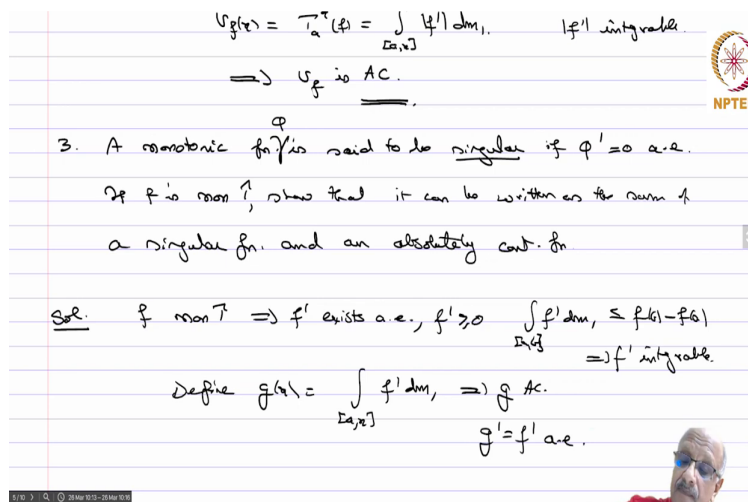 υ_f(x) = T_a^x(f) = ∫_{[a,x]} |f'| dm₁ |f'| integrable.
⟹ υ_f is AC.
NPTE
3. A monotonic fn. φ is said to be singular if φ' = 0 a.e.
If f is mon ↑, show that it can be written as the sum of
a singular fn. and an absolutely cont. fn
Sol. f mon ↑ ⟹ f' exists a.e., f' ≥ 0 ∫_{[a,b]} f' dm₁ ≤ f(b) - f(a)
⟹ f' integrable.
Define g(x) = ∫_{[a,x]} f' dm₁ ⟹ g AC.
g' = f' a.e.
5 / 10 26 Mar 10:13 - 26 Mar 10:16